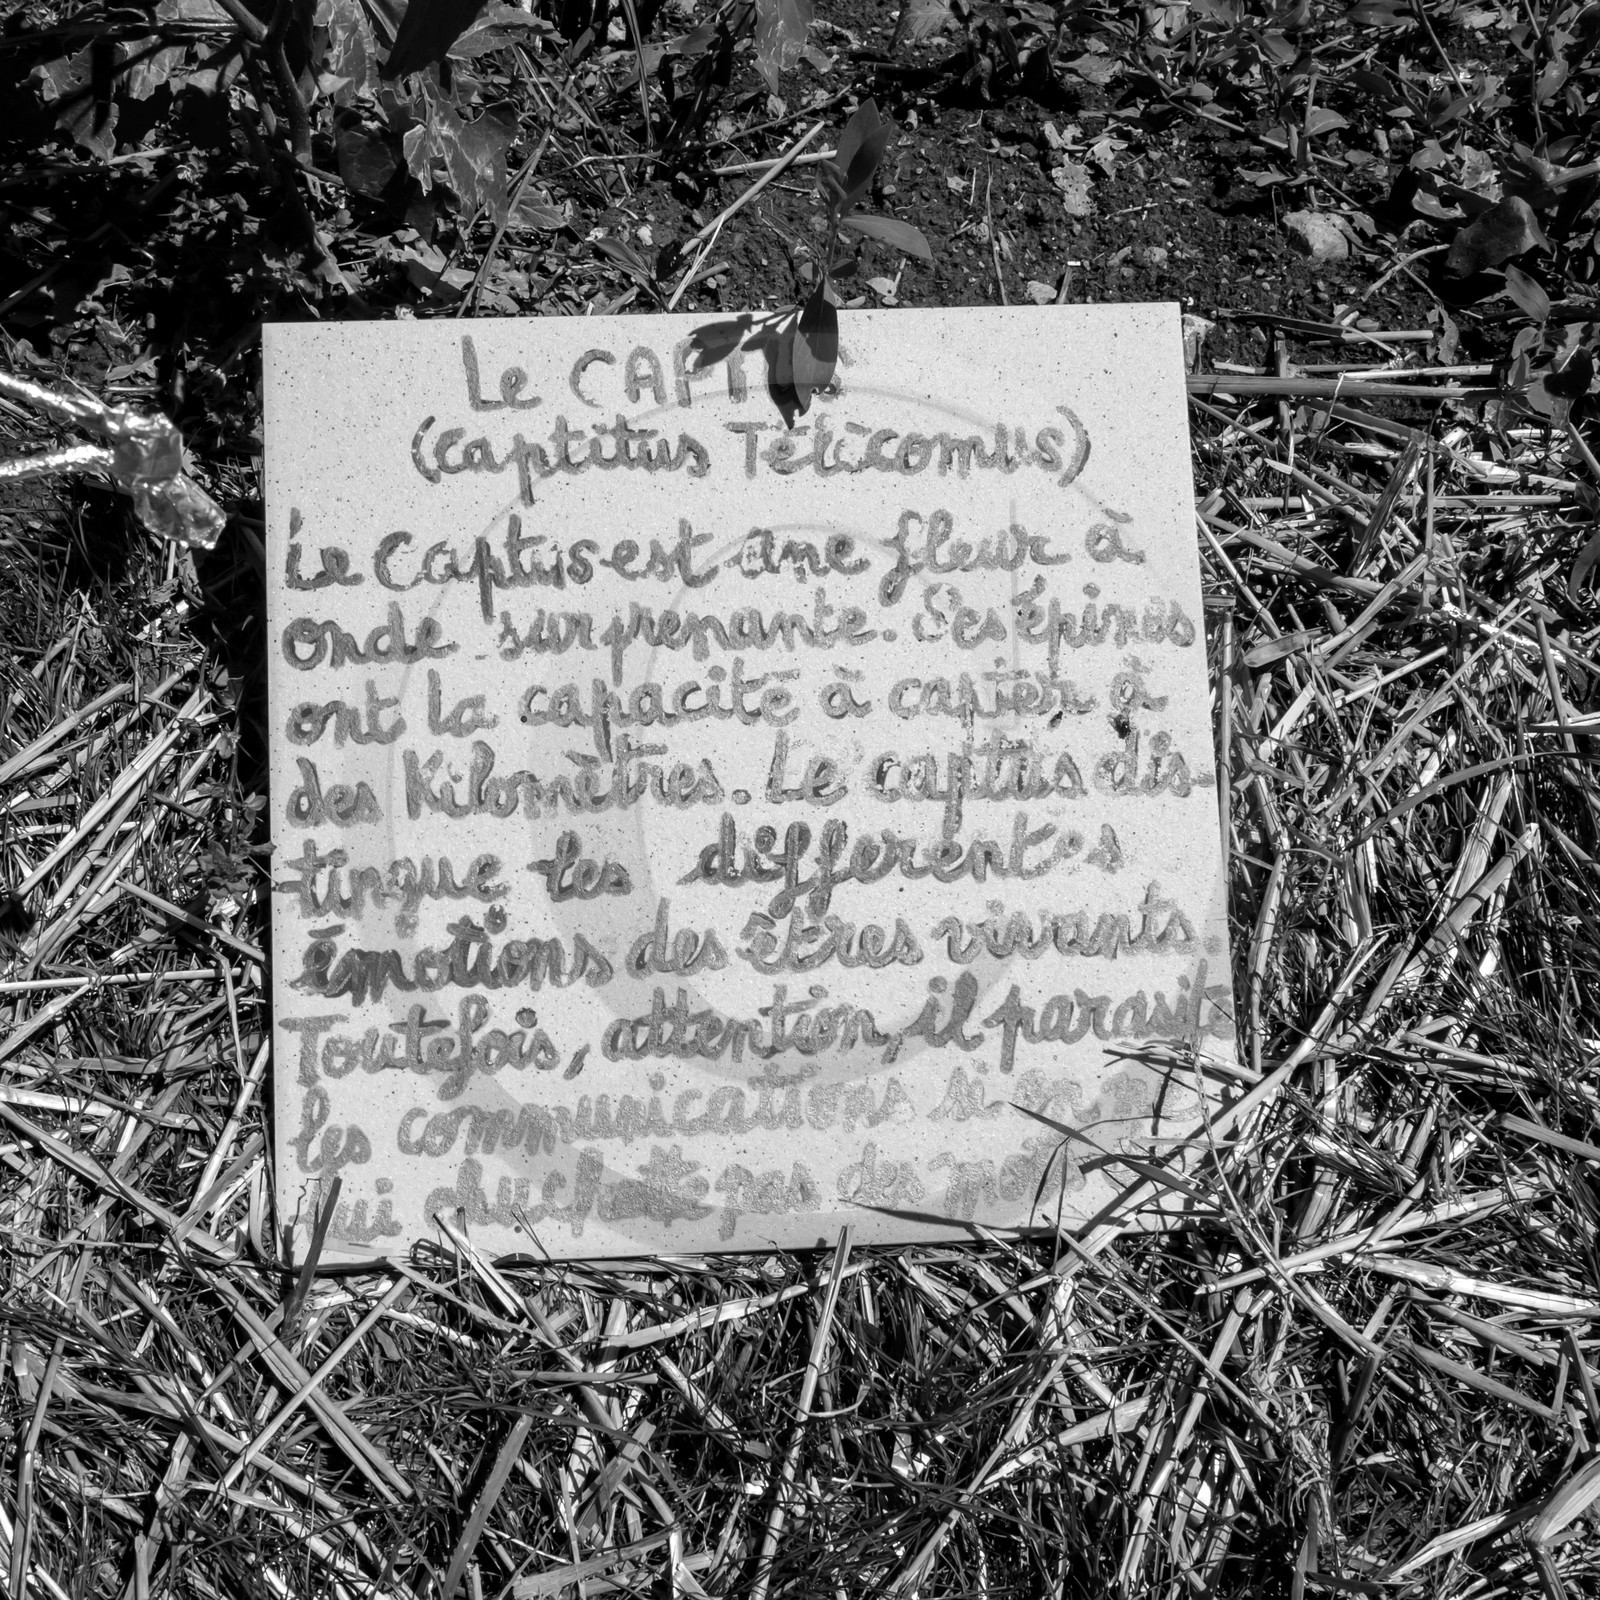 Le CAPTUS
(captitus Télécomus)
Le Captus est une fleur à
onde surprenante. Ses épines
ont la capacité à capter à
des Kilomètres. Le captus dis-
tingue les différentes
émotions des êtres vivants.
Toutefois, attention, il parasite
les communications si on ne
lui chuchote pas des mots